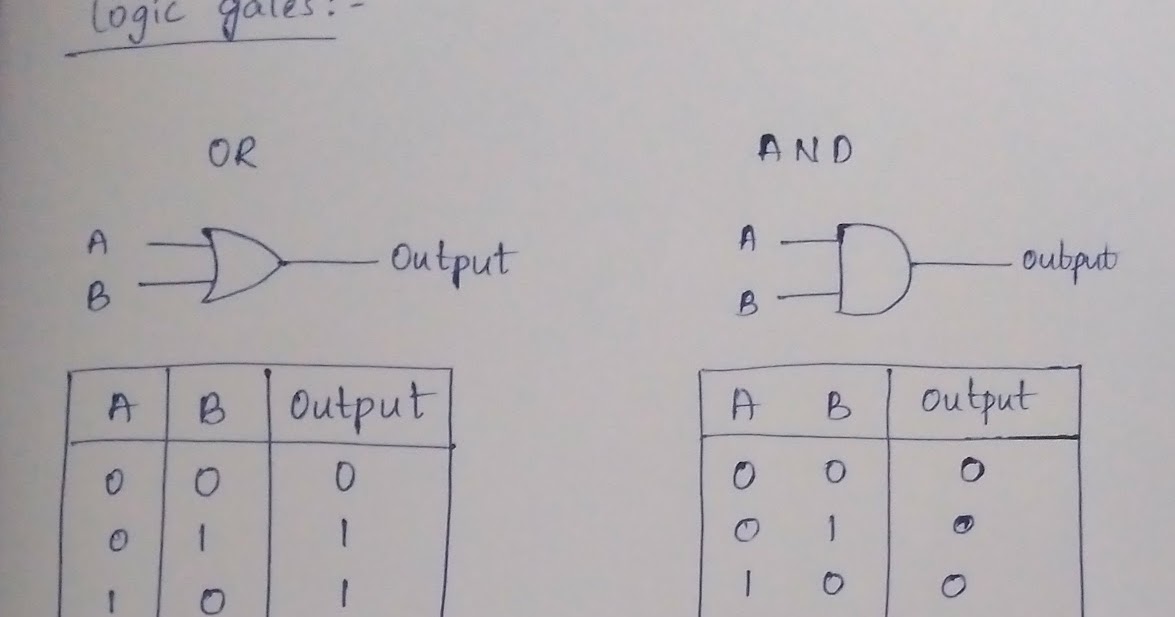 logic gates:-
OR
AND
A
B
Output
A
B
output
A B Output
0 0 0
0 1 1
1 0 1
A B Output
0 0 0
0 1 0
1 0 0